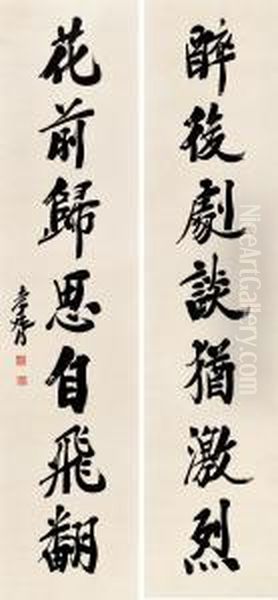 醉後劇談猶激烈
花前歸思自飛翻
孝胥
WWW.NiceArtGallery.com